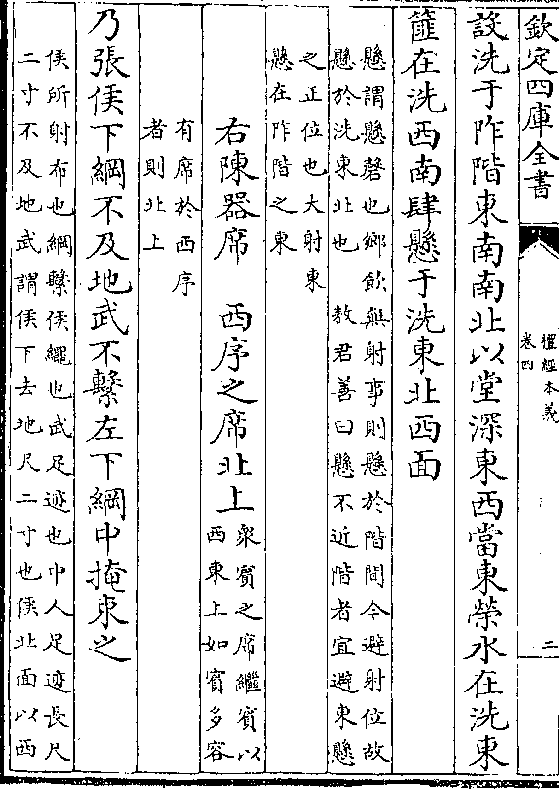 欽定四庫全書
禮經本義
卷四
二
設洗于阼階東南南北以堂深東西當東榮水在洗東
篚在洗西南肆懸于洗東北西面
懸謂懸磬也鄉飲無射事則懸於階間今避射位故
懸於洗東北也　敖君善曰懸不近階者宜避東懸
之正位也大射東
懸在阼階之東
右陳器席　西序之席北上
衆賓之席繼賓以
西東上如賓多容
有席於西序
者則北上
乃張侯下綱不及地武不繫左下綱中掩束之
侯所射布也綱繫侯繩也武足迹也中人足迹長尺
二寸不及地武謂侯下去地尺二寸也侯北面以西